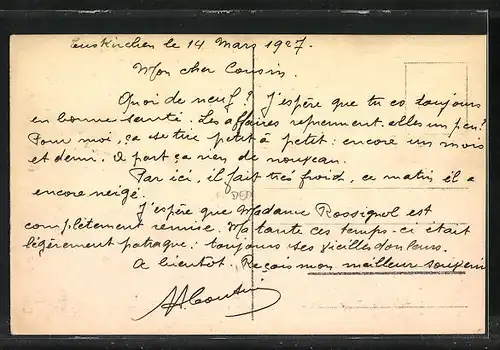 Euskirchen le 14 Mars 1927.
Mon cher Cousin.
Quoi de neuf? J'espère que tu es toujours
en bonne santé. Les affaires reprennent-elles un peu?
Pour moi, ça se tire petit à petit: encore un mois
et demi. à part ça rien de nouveau.
Par ici, il fait très froid, ce matin il a
encore neigé.
J'espère que Madame Rossignol est
complètement remise. Ma tante ces temps-ci était
légèrement patraque: toujours ses vieilles douleurs.
A bientôt. Reçois mon meilleur souvenir